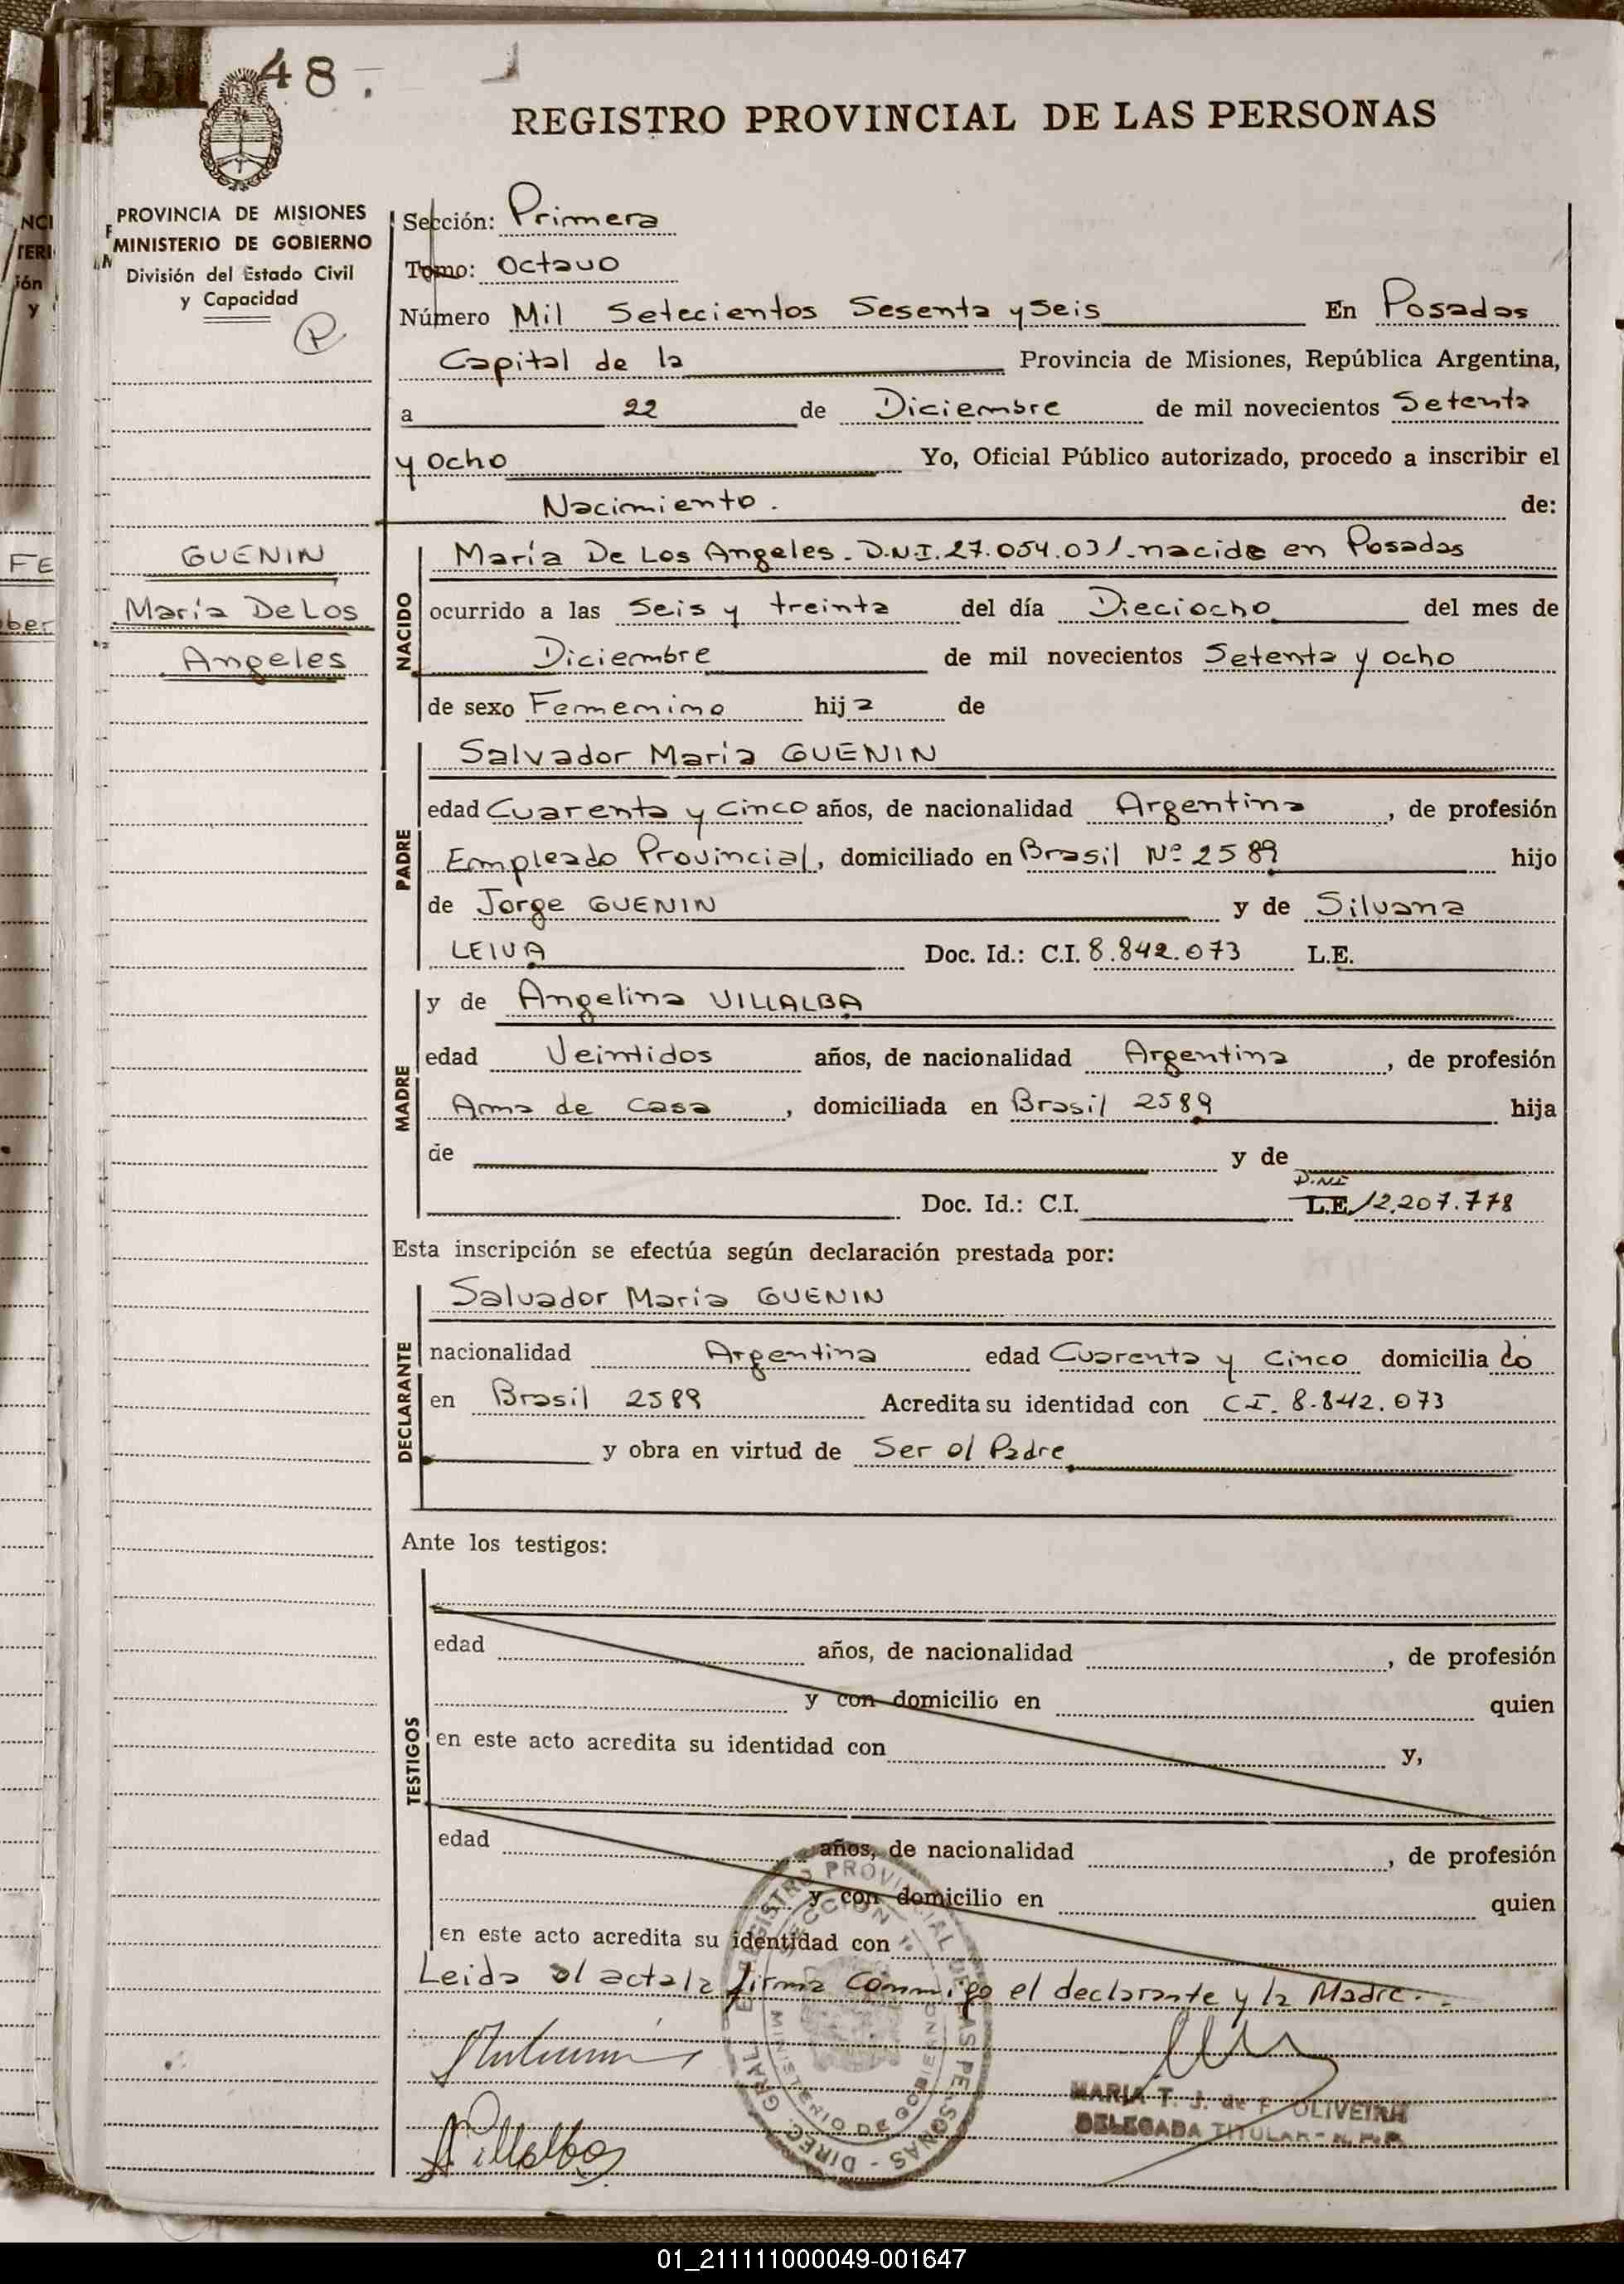 48.-
REGISTRO PROVINCIAL DE LAS PERSONAS
PROVINCIA DE MISIONES
MINISTERIO DE GOBIERNO
División del Estado Civil
y Capacidad
R
GUENIN
María De Los
Angeles
Sección: Primera
Tomo: Octavo
Número Mil Setecientos Sesenta y Seis En Posadas
Capital de la Provincia de Misiones, República Argentina,
a 22 de Diciembre de mil novecientos Setenta
y ocho Yo, Oficial Público autorizado, procedo a inscribir el
Nacimiento. de:
NACIDO
María De Los Angeles. D.N.I. 27.054.031. nacida en Posadas
ocurrido a las Seis y treinta del día Dieciocho del mes de
Diciembre de mil novecientos Setenta y ocho
de sexo Femenino hija de
PADRE
Salvador María GUENIN
edad Cuarenta y Cinco años, de nacionalidad Argentina, de profesión
Empleado Provincial, domiciliado en Brasil Nº 2589 hijo
de Jorge GUENIN y de Silvana
LEIVA Doc. Id.: C.I. 8.842.073 L.E.
MADRE
y de Angelina VILLALBA
edad Veintidos años, de nacionalidad Argentina, de profesión
Ama de Casa, domiciliada en Brasil 2589 hija
de y de
D.N.I
Doc. Id.: C.I. L.E. 12.207.778
Esta inscripción se efectúa según declaración prestada por:
DECLARANTE
Salvador María GUENIN
nacionalidad Argentina edad Cuarenta y Cinco domiciliado
en Brasil 2589 Acredita su identidad con C.I. 8.842.073
y obra en virtud de Ser el Padre
Ante los testigos:
TESTIGOS
edad años, de nacionalidad , de profesión
y con domicilio en quien
en este acto acredita su identidad con y,
edad años, de nacionalidad , de profesión
y con domicilio en quien
en este acto acredita su identidad con
Leida el acta la firma conmigo el declarante y la Madre.
REGISTRO PROVINCIAL DE LAS PERSONAS - DIREC. GRAL.
SECCION 1º
MINISTERIO DE GOBIERNO
AVillalba
MARIA T. J. de F. OLIVEIRA
DELEGADA TITULAR - R.P.P.
01_211111000049-001647